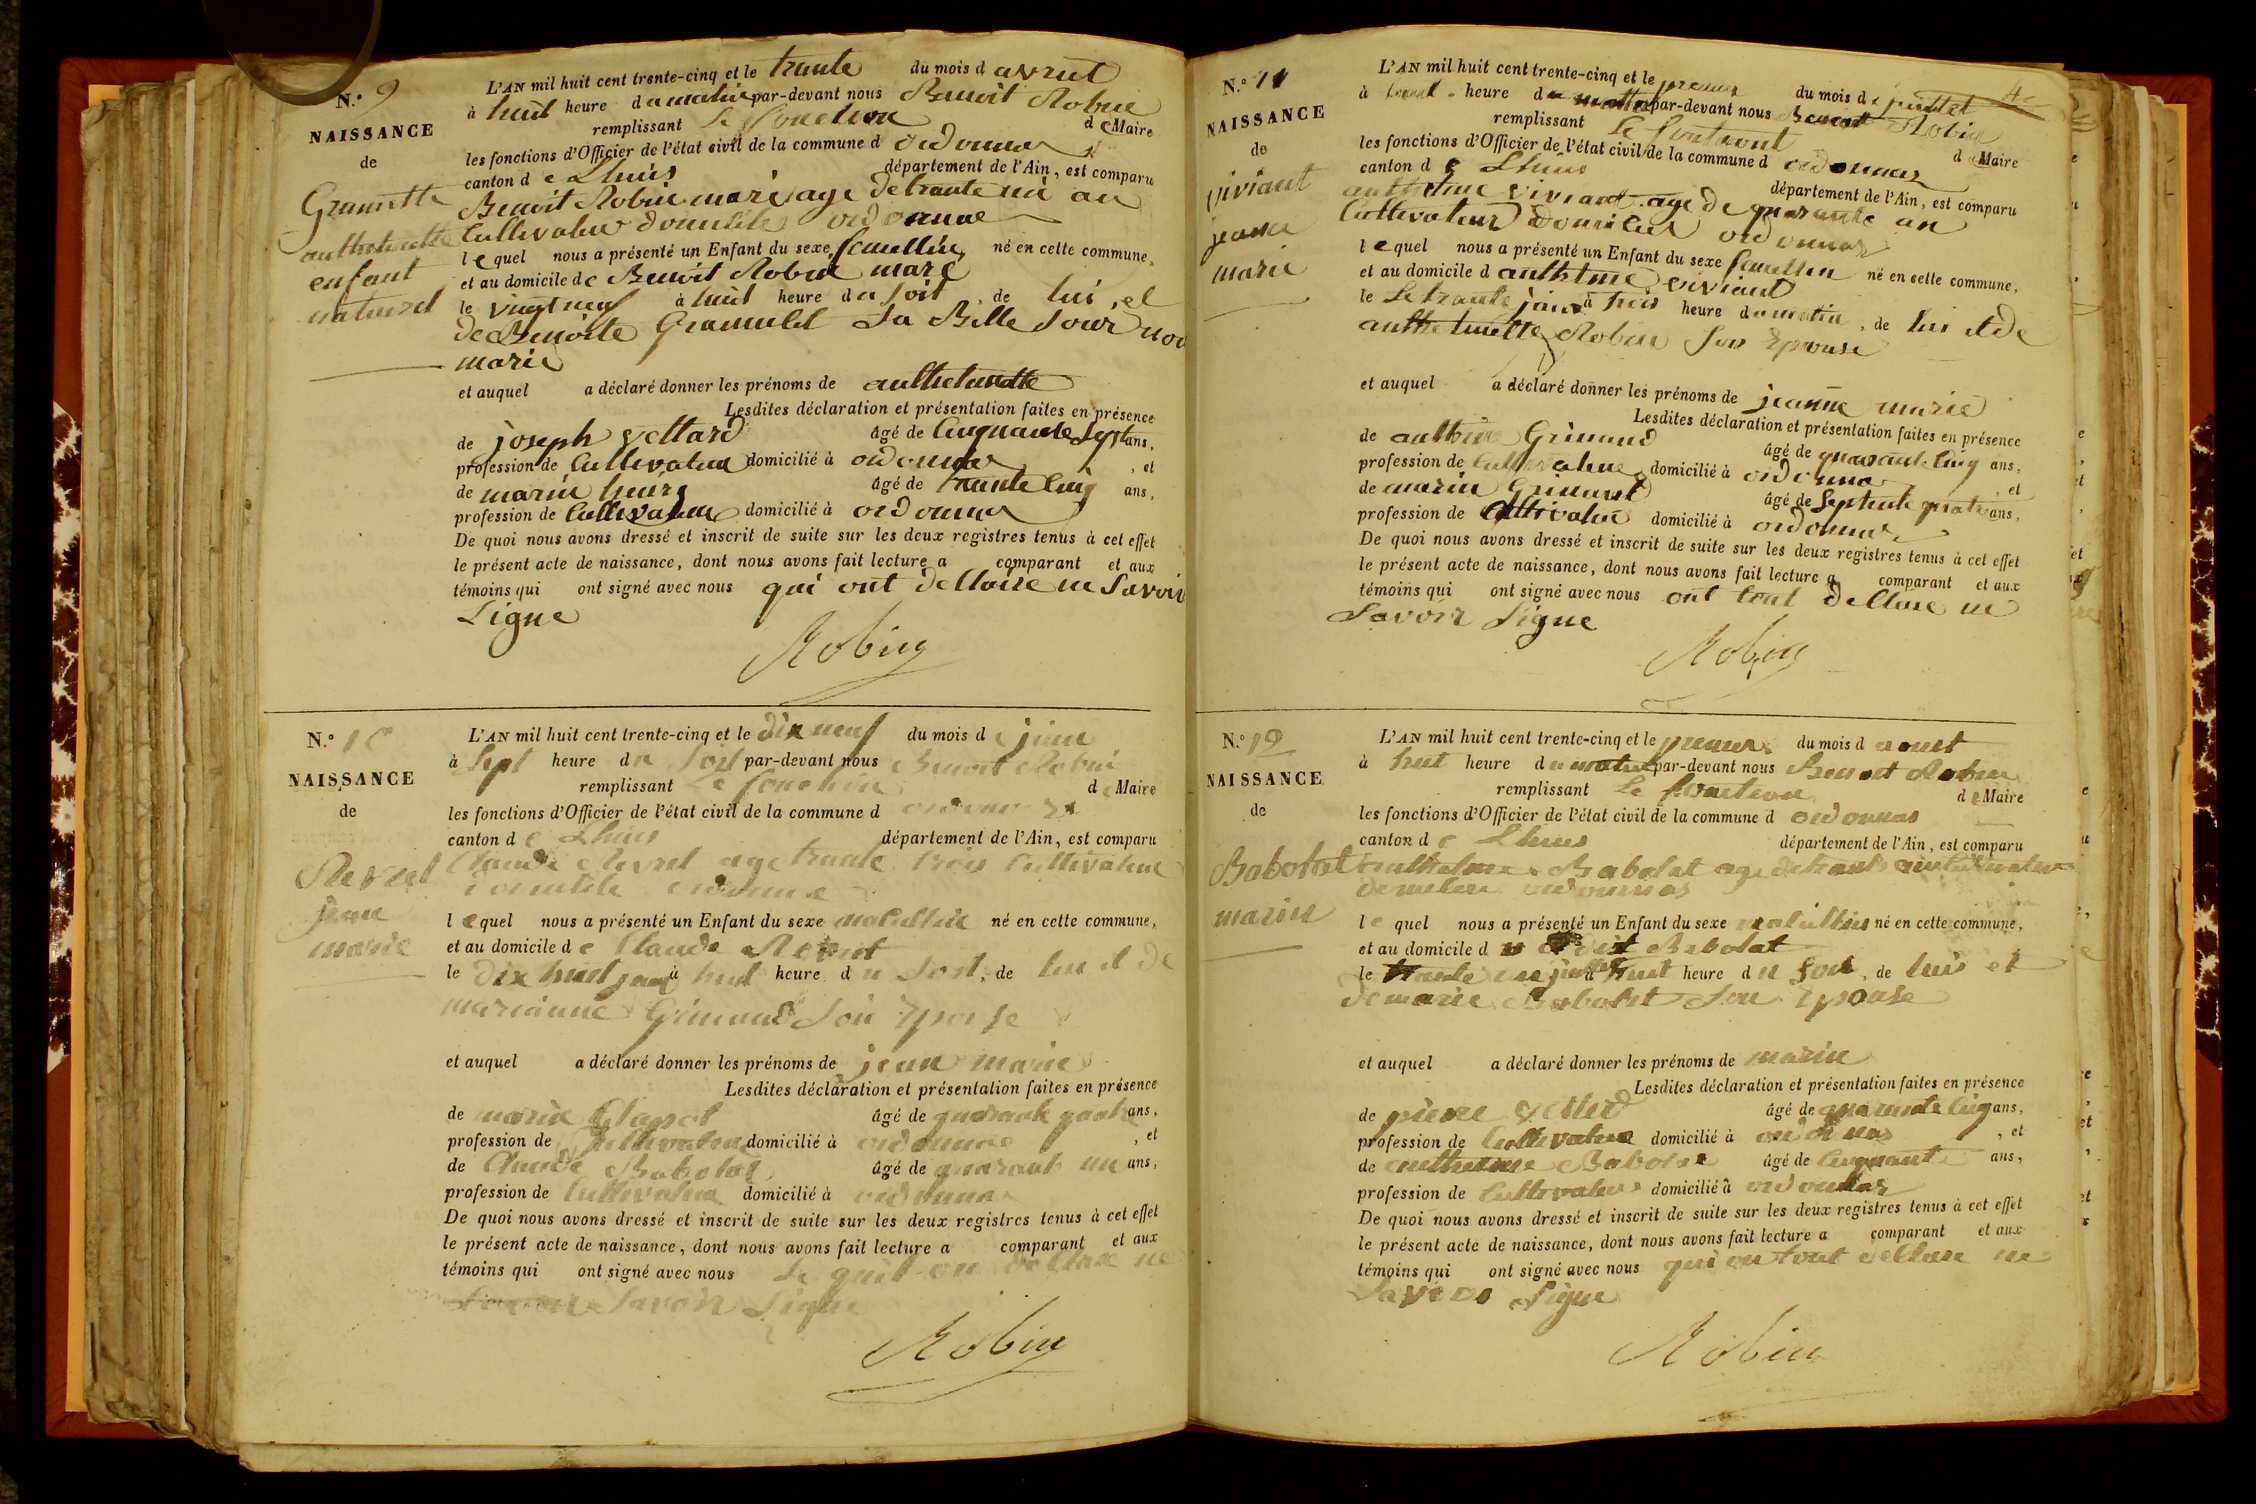 N.º 9
NAISSANCE
de
Gramette
anthelmette
enfant
naturel
L'AN mil huit cent trente-cinq et le trante du mois d avril
à huit heure du matin par-devant nous Benoit Robin
remplissant le fonction de Maire
les fonctions d'Officier de l'état civil de la commune d ordonnas
canton de Lhuis département de l'Ain, est comparu
Benoit Robin maire age de trante un an
Cultivateur domicile ordonnas
lequel nous a présenté un Enfant du sexe femellin né en cette commune,
et au domicile de Benoit Robin mare
le vingt neuf à huit heure du soit, de lui et
de Benoite Gramulet sa Belle Sour non
marie
et auquel a déclaré donner les prénoms de anthelmette
Lesdites déclaration et présentation faites en présence
de joseph vettard âgé de Cinquante Sept ans,
profession de Cultivateur domicilié à ordonnas, et
de marin henry âgé de trante Cinq ans,
profession de Cultivateur domicilié à ordonnas
De quoi nous avons dressé et inscrit de suite sur les deux registres tenus à cet effet
le présent acte de naissance, dont nous avons fait lecture a comparant et aux
témoins qui ont signé avec nous qui ont dellaire ne Savoir
Signe
Robin
N.º 10
NAISSANCE
de
Revret
jean
marie
L'AN mil huit cent trente-cinq et le dix neuf du mois de juin
à Sept heure du Soit par-devant nous Benoit Robin
remplissant le fonction de Maire
les fonctions d'Officier de l'état civil de la commune d ordonnas
canton de Lhuis département de l'Ain, est comparu
Claude Revret age trante trois Cultivateur
domicile ordonnas
lequel nous a présenté un Enfant du sexe masculin né en cette commune,
et au domicile de Claude Revret
le dix huit juin à huit heure du Soit, de lui et de
marianne Grimaud Son Epouse
et auquel a déclaré donner les prénoms de jean marie
Lesdites déclaration et présentation faites en présence
de marin Clapot âgé de quarante quatre ans,
profession de Cultivateur domicilié à ordonnas, et
de Claude Babolat âgé de quarante un ans,
profession de Cultivateur domicilié à ordonnas
De quoi nous avons dressé et inscrit de suite sur les deux registres tenus à cet effet
le présent acte de naissance, dont nous avons fait lecture a comparant et aux
témoins qui ont signé avec nous dellare ne
Savoir Signe
Robin
N.º 11
NAISSANCE
de
viviant
jeanne
marie
L'AN mil huit cent trente-cinq et le premier du mois de juillet
à heure du matin par-devant nous Benoit Robin
remplissant le de Maire
les fonctions d'Officier de l'état civil de la commune d ordonnas
canton de Lhuis département de l'Ain, est comparu
anthelme viviant age de quarante an
Cultivateur domicilié ordonnas
lequel nous a présenté un Enfant du sexe femellin né en cette commune,
et au domicile d anthelme viviant
le Le trante juin à trois heure du matin, de lui et de
anthelmette Robin Son Epouse
et auquel a déclaré donner les prénoms de jeanne marie
Lesdites déclaration et présentation faites en présence
de Grimaud âgé de quarante Cinq ans,
profession de Cultivateur domicilié à ordonnas, et
de marin Grimaud âgé de Septente quatre ans,
profession de Cultivateur domicilié à ordonnas
De quoi nous avons dressé et inscrit de suite sur les deux registres tenus à cet effet
le présent acte de naissance, dont nous avons fait lecture a comparant et aux
témoins qui ont signé avec nous ont tout dellare ne
Savoir Signe
Robin
N.º 12
NAISSANCE
de
Babolat
marin
L'AN mil huit cent trente-cinq et le premier du mois d aoust
à huit heure du matin par-devant nous Benoit Robin
remplissant le fonction de Maire
les fonctions d'Officier de l'état civil de la commune d ordonnas
canton de Lhuis département de l'Ain, est comparu
anthelme Babolat age de trante Cultivateur
domicilie ordonnas
lequel nous a présenté un Enfant du sexe masculin né en cette commune,
et au domicile du dit Babolat
le trante un juillet à huit heure du Soit, de lui et
de marie Babolat Son Epouse
et auquel a déclaré donner les prénoms de marin
Lesdites déclaration et présentation faites en présence
de pierre âgé de quarante Cinq ans,
profession de Cultivateur domicilié à ordonnas, et
de anthelme Babolat âgé de Cinquante ans,
profession de Cultivateur domicilié à ordonnas
De quoi nous avons dressé et inscrit de suite sur les deux registres tenus à cet effet
le présent acte de naissance, dont nous avons fait lecture a comparant et aux
témoins qui ont signé avec nous qui on tout dellare ne
Savoir Signe
Robin